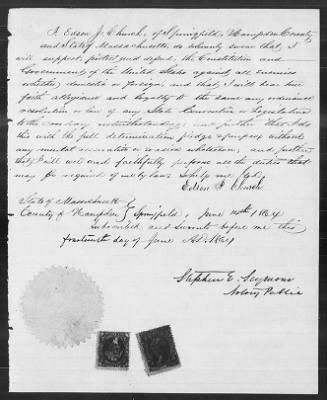 I Edson J. Church, of Springfield, Hampden County
and State of Massachusetts do solemnly swear that, I
will support, protect, and defend, the Constitution and
Government of the United States against all enemies
whether, domestic or foreign, and that, I will bear true
faith allegiance and loyalty to the same any ordinance
resolution or law of any State Convention or Legislature
to the contrary notwithstanding; and further that I do
this with the full determination, pledge & purpose without
any mental reservation or evasion whatsoever, and further
that, I will well and faithfully perform all the duties that
may be required of me by law. So help me God,
Edson J. Church
State of Massachusetts
County of Hampden Springfield, June 14th 1864
Subscribed, and sworn to before me this
fourteenth day of June A.D. 1864
Stephen E. Seymour
Notary Public